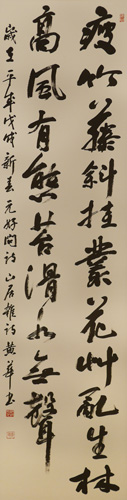 瘦竹藤斜挂丛花草乱生林
高风有态苔滑水无声
岁在平年戊戌新春元好问诗山居杂诗黄华书